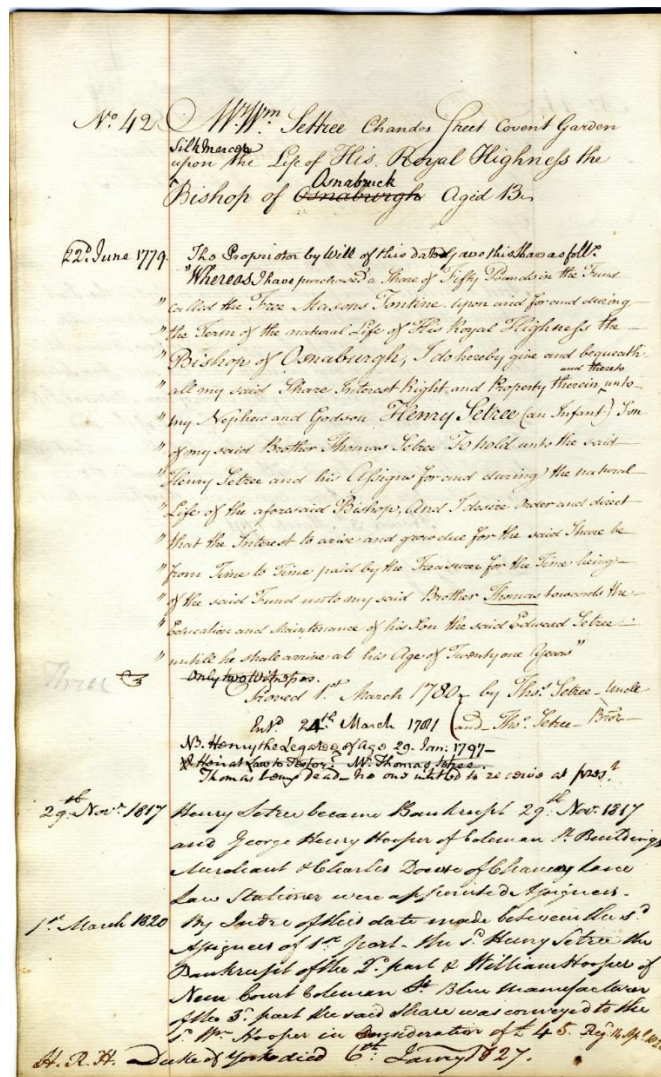 No. 42 Mr. Wm. Settree Chandos Street Covent Garden
Silk mercer
upon the Life of His Royal Highness the
Osnabruck
Bishop of Osnaburgh Aged 13.
22d. June 1779. The Proprietor by Will of this date Gave this Share as follws.
"Whereas I have purchased a Share of Fifty Pounds in the Fund
" called the Free Masons Tontine upon and for and during
" the Term of the natural Life of His Royal Highness the
" Bishop of Osnaburgh, I do hereby give and bequeath
and thereto
" all my said Share Interest Right and Property therein unto
" my Nephew and Godson Henry Setree (an Infant) Son
" of my said Brother Thomas Setree To hold unto the said
" Henry Setree and his Assigns for and during the natural
" Life of the aforesaid Bishop, And I desire Order and direct
" that the Interest to arise and grow due for the said Share be
" from Time to Time paid by the Treasurer for the Time being
" of the said Fund unto my said Brother Thomas towards the
" Education and Maintenance of his Son the said Edward Setree
" untill he shall arrive at his Age of Twenty one Years"
Three
Only two Witnesses.
Proved 1st. March 1780 by Thos. Setree Uncle
Entd. 24th March 1781 and Thos. Setree Bror
NB. Henry the Legatee of Age 29. Jan: 1797
& Heir at Law to Testor. Mr. Thomas Setree.
Thomas being dead no one intitled to receive at prest.
29th Novr. 1817 Henry Setree became Bankrupt 29th Nov. 1817
and George Henry Hooper of Coleman St. Buildings
Merchant & Charles Dowse of Chancery Lane
Law Stationer were appointed Assignees.
1st March 1820 By Indre of this date made between the sd
Assignees of 1st part the sd. Henry Setree the
Bankrupt of the 2d. part & William Hooper of
New Court Coleman St. Blue Manufacturer
of the 3d. part the said Share was conveyed to the
sd. Wm. Hooper in Consideration of £45. Regd. 14 Apl.
H. R. H. Duke of York died 6th. Janry 1827.